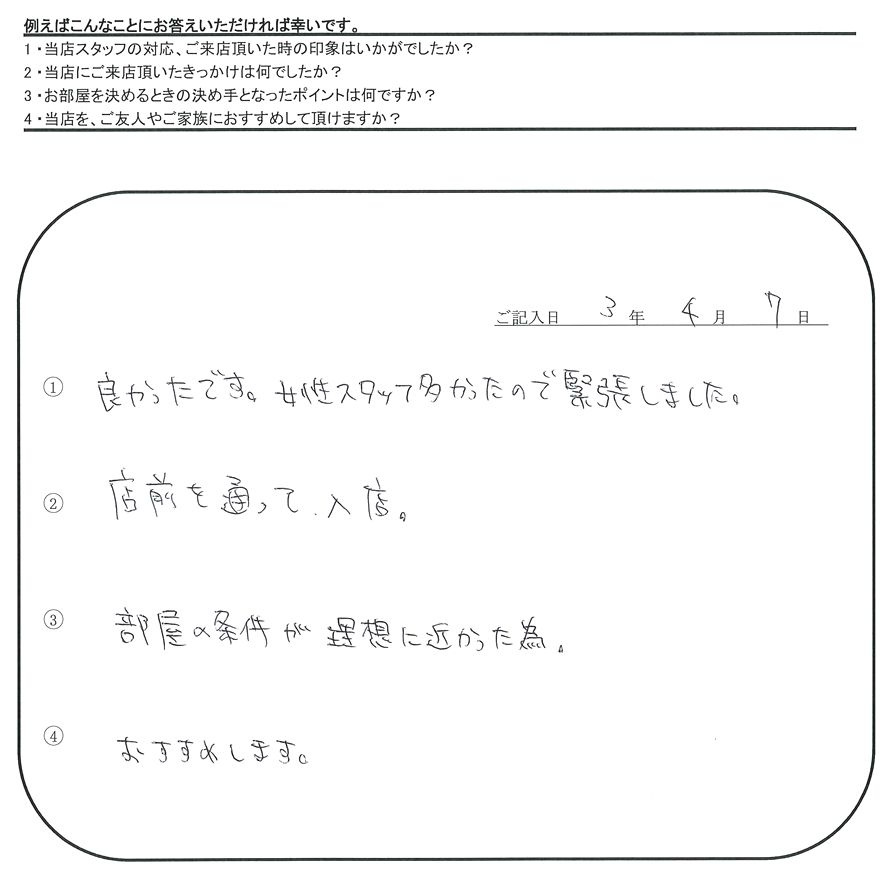 例えばこんなことにお答えいただければ幸いです。
1・当店スタッフの対応、ご来店頂いた時の印象はいかがでしたか？
2・当店にご来店頂いたきっかけは何でしたか？
3・お部屋を決めるときの決め手となったポイントは何ですか？
4・当店を、ご友人やご家族におすすめして頂けますか？
ご記入日 3年 4月 7日
① 良かったです。女性スタッフ多かったので緊張しました。
② 店前を通って、入店。
③ 部屋の条件が理想に近かった為。
④ おすすめします。